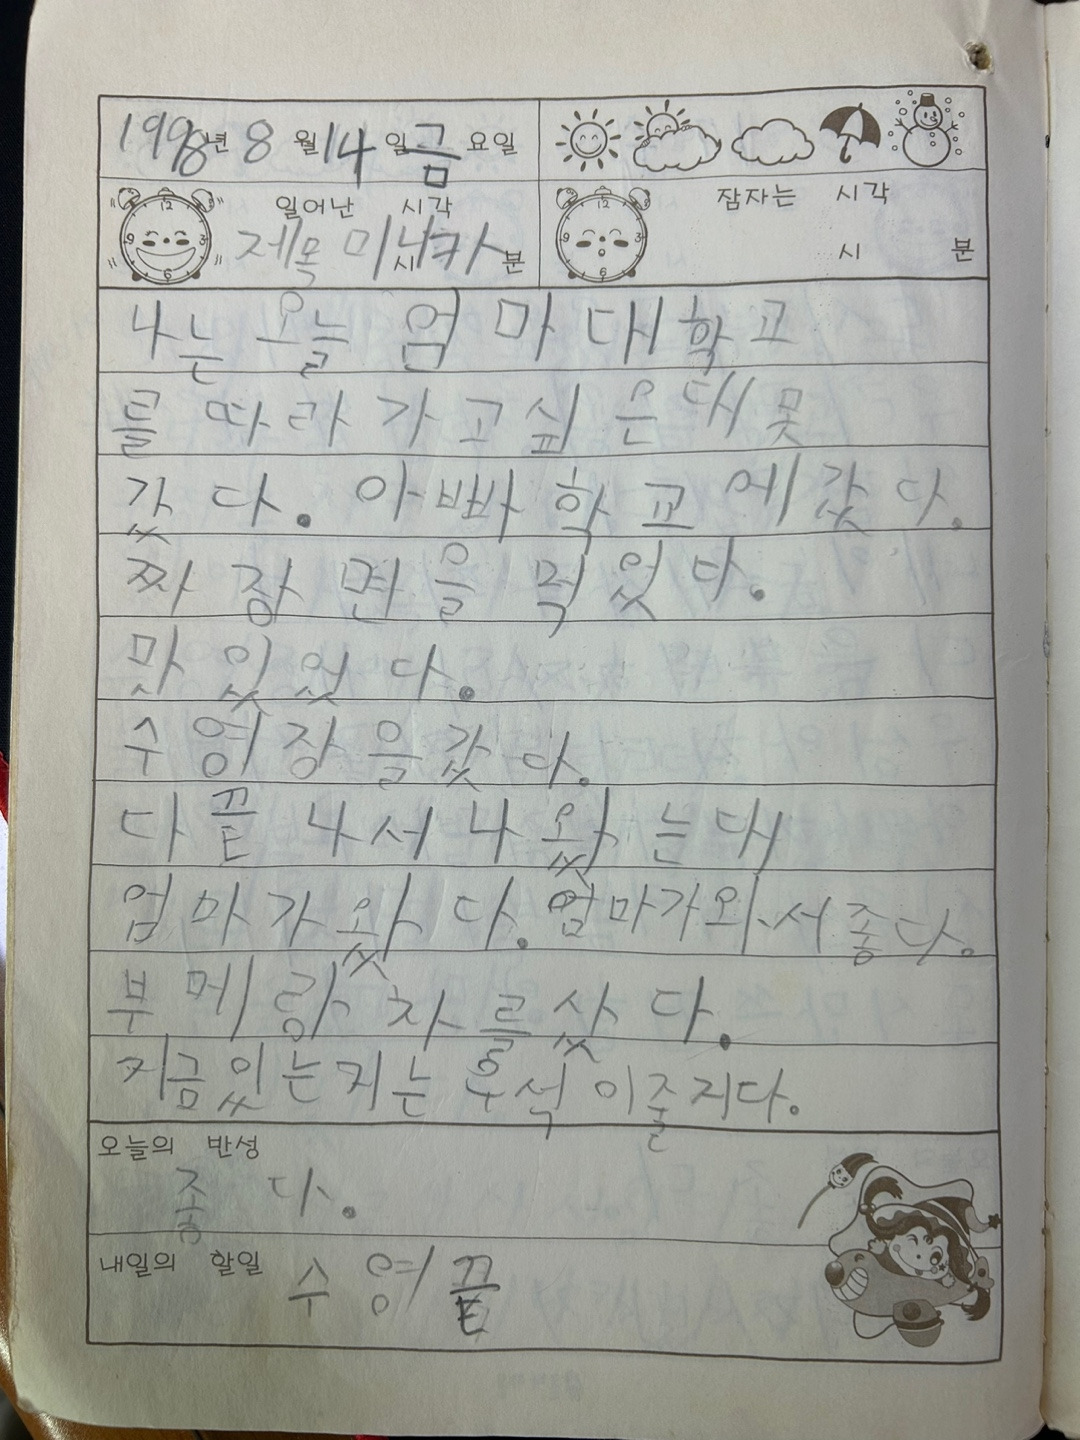 1998년 8월 14일 금요일
일어난 시각
제목 미니카
시 분
잠자는 시각
시 분
나는 오늘 엄마 대학교
를 따라 가고 싶은대 못
갔다. 아빠 학교에 갔다.
짜장면을 먹었다.
맛있었다.
수영장을 갔다.
다 끝나서 나왔는대
엄마가 왔다. 엄마가 와서 좋다.
부메랑 차를 샀다.
지금있는 거는 우석이줄 거다.
오늘의 반성
좋다.
내일의 할일
수영 끝